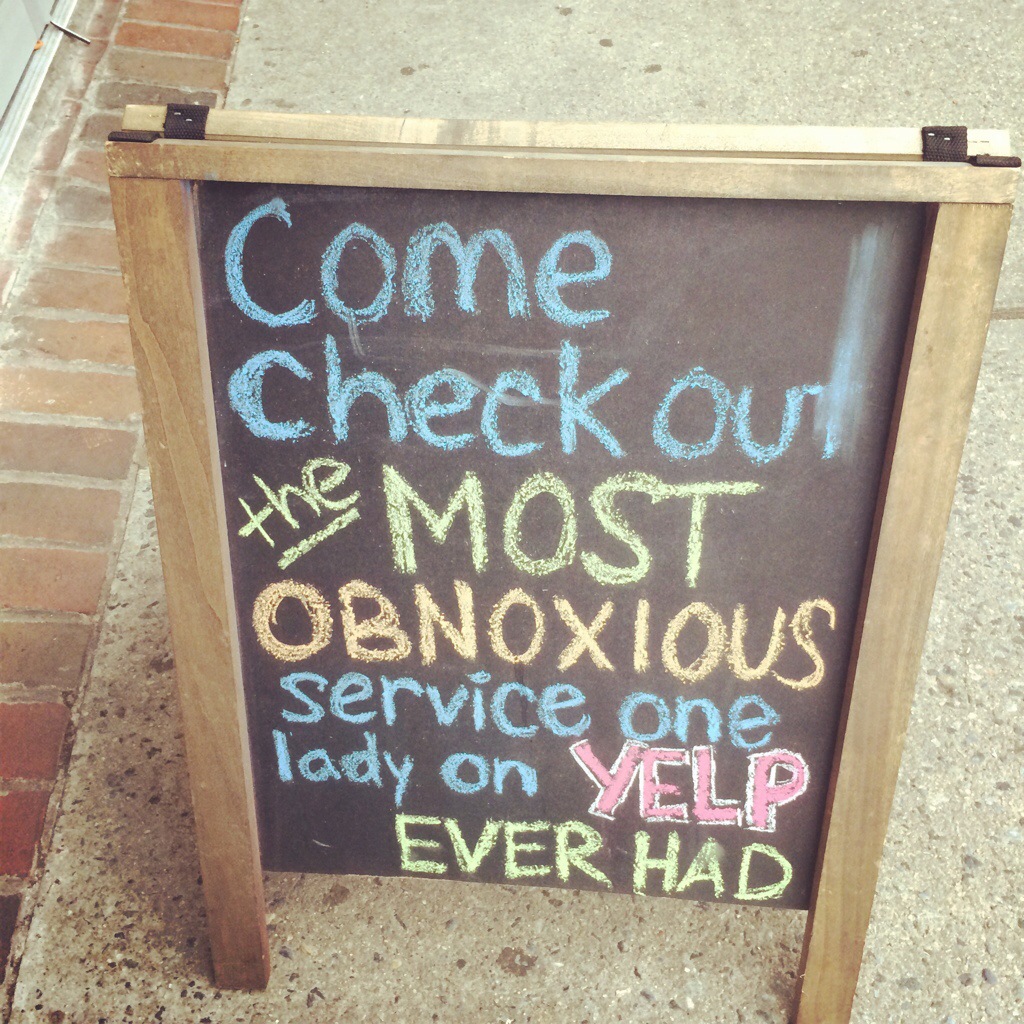 Come
Check out
the MOST
OBNOXIOUS
service one
lady on YELP
EVER HAD